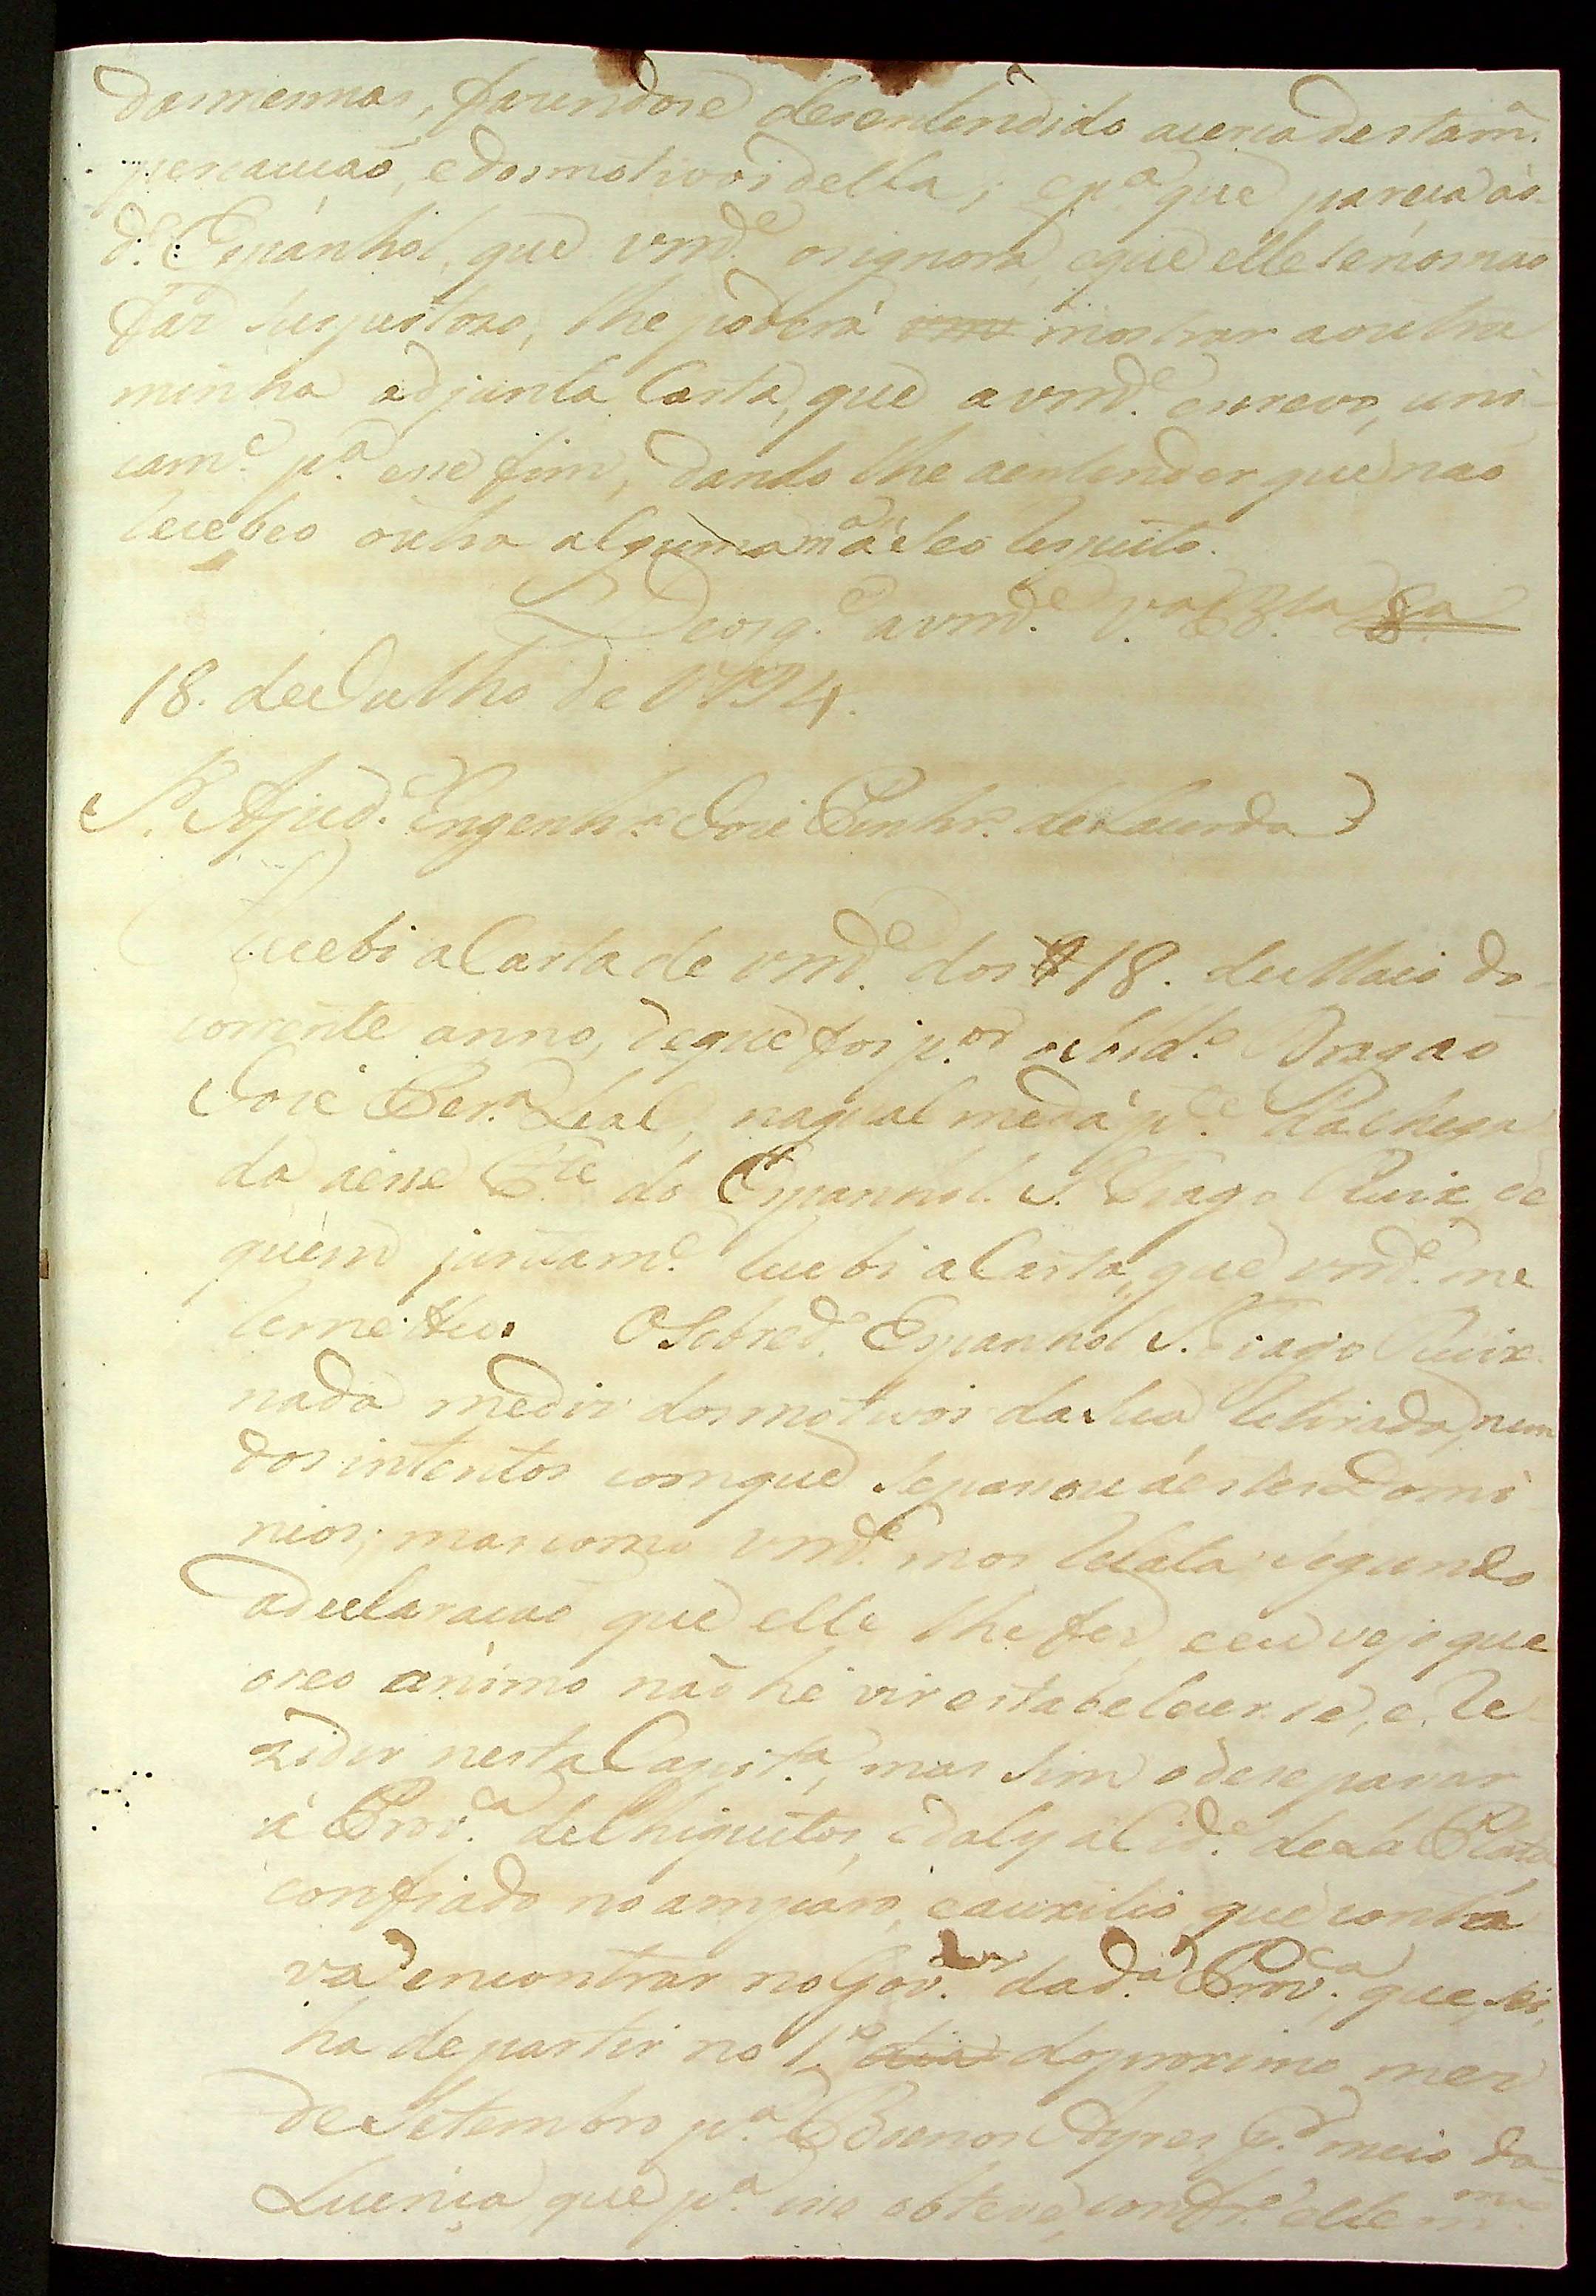 das mesmas, fazendose desentendido acerca desta m.ª
percaução, e dos motivos della; e p.ª que pareça ao
d.º Espanhol, que vm.ce os ignora, e que elle se nos não
faz suspeitoso, lhe poderá mostrar a outra
minha adjunta Carta, que a vm.ce escrevo, uni-
cam.e p.ª esse fim, dando lhe a entender que não
recebeo outra alguma m.ª a seo respeito.
Deos g.e a vm.ce V.ª B.la
18. de Julho de 1794.
S.r Ajud.e Engenh.ro Joze Pinhr.º de Lacerda
Recebi a Carta de vm.ce dos 18. de Maio do
corrente anno, de que foi p.or o sold.º Dragaõ
Joze Per.ª Leal, na qual me dá p.te da chega
da a esse E.te do Espanhol S. Tiago Ruix, de
quem juntam.e recebi a Carta, que vm.ce me
remetteo. O Sobred.º Espanhol S. Tiago Ruix
nada me diz dos motivos da sua retirada, nem
dos intentos com que se passou a estes Domi
nios; mas como vm.ce mos relata segundo
a declaração que elle lhe fez, e eu vejo que
o seo animo não hé vir estabelecerse, e re-
zidir nesta Capit.ª, mas sim o de se passar
á Prov.ª de Chiquitos, e daly a Cid.e de La Plata
confiado no amparo, e auxilio que conta
va encontrar no Gov.or da d.ª Prov.ca que, sei,
ha de partir no 1.º do proximo mez
de Setembro p.ª Buenos Ayres p.r meio da
Licença que p.ª isso obteve, conf.e elle m.mo